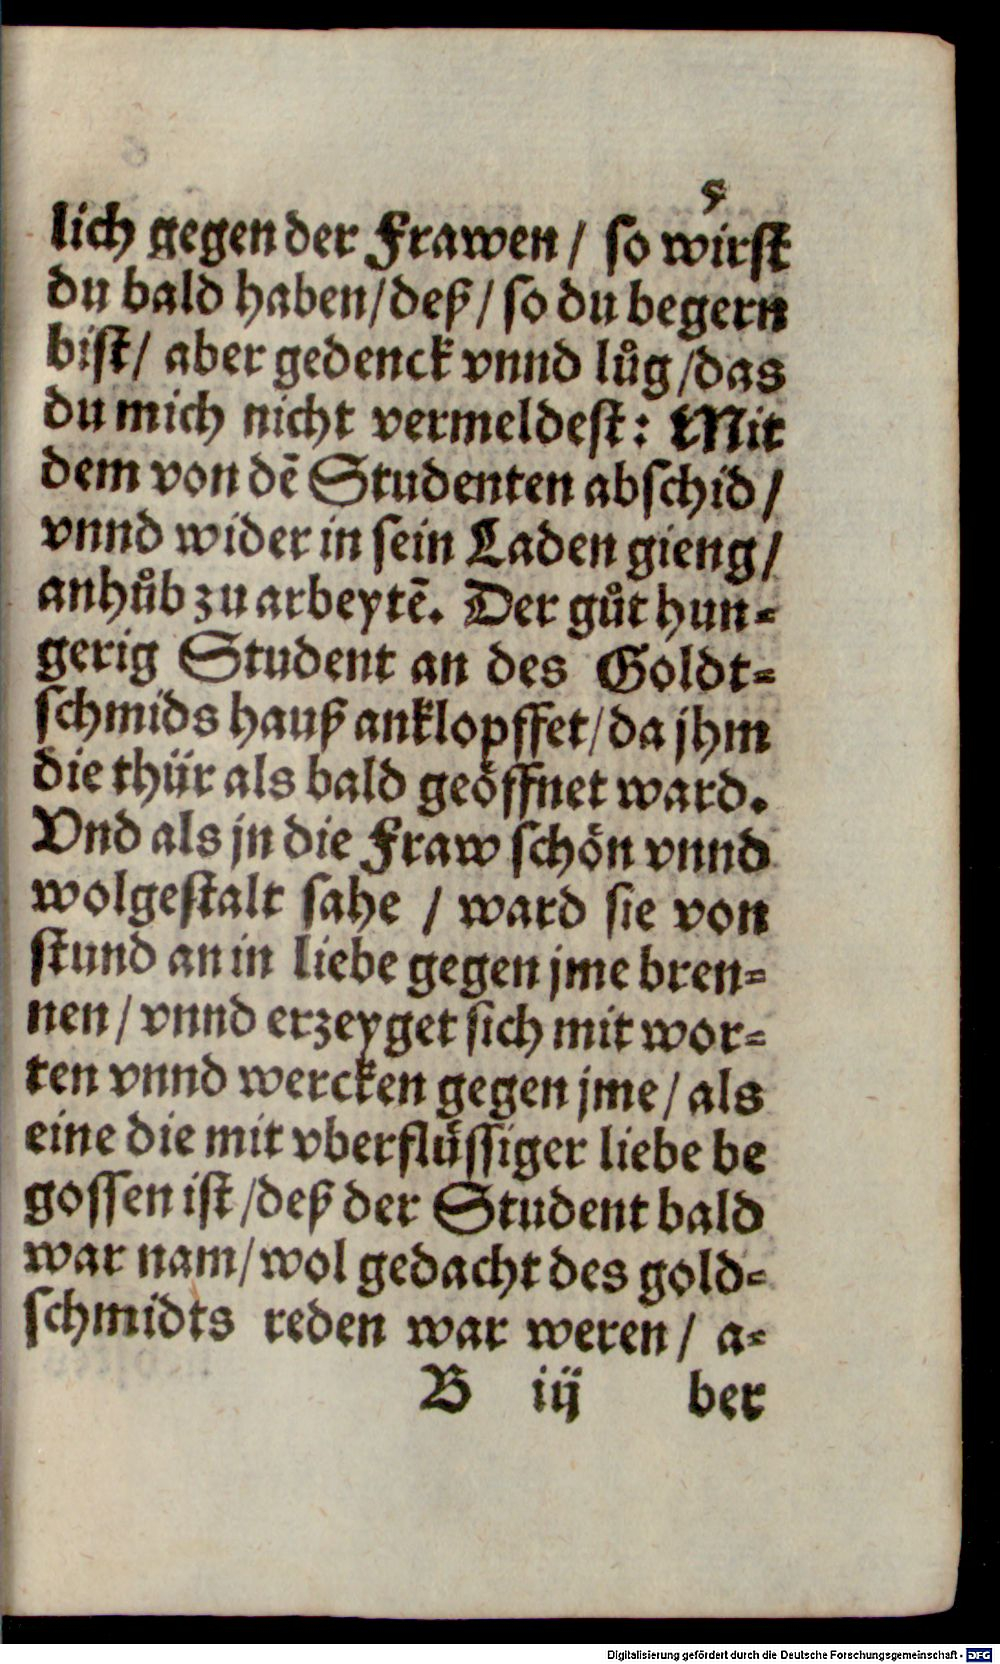 5
lich gegen der Frawen / so wirst
du bald haben/deß/ so du begern
bist/ aber gedenck vnnd lůg/das
du mich nicht vermeldest: Mit
dem von dē Studenten abschid/
vnnd wider in sein Laden gieng/
anhůb zu arbeytē. Der gůt hun-
gerig Student an des Goldt-
schmids hauß anklopffet/da jhm
die thür als bald geöffnet ward.
Vnd als jn die Fraw schön vnnd
wolgestalt sahe / ward sie von
stund an in liebe gegen jme bren-
nen/ vnnd erzeyget sich mit wor-
ten vnnd wercken gegen jme/ als
eine die mit vberflüssiger liebe be
gossen ist/deß der Student bald
war nam/wol gedacht des gold-
schmidts reden war weren/ a-
B iij ber
Digitalisierung gefördert durch die Deutsche Forschungsgemeinschaft - DFG